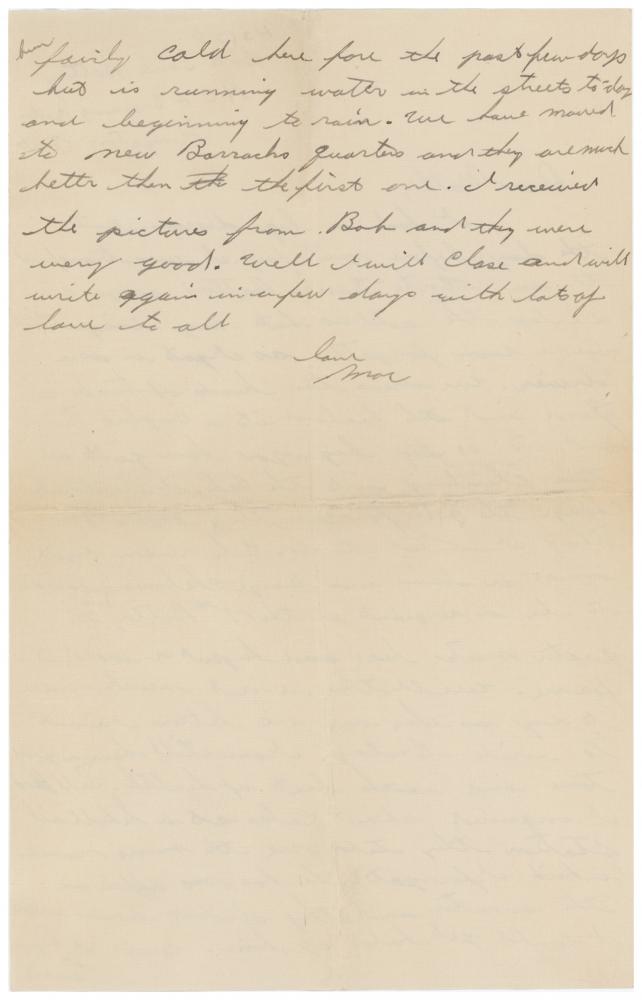 been fairly cold here fore the past few days
but is running water in the streets to-day
and beginning to rain. We have moved
to new Barracks quarters and they are much
better then the the first one. I received
the pictures from Bob and they were
very good. Well I will Close and will
write again in a few days with lots of
love to all
Love
Moe